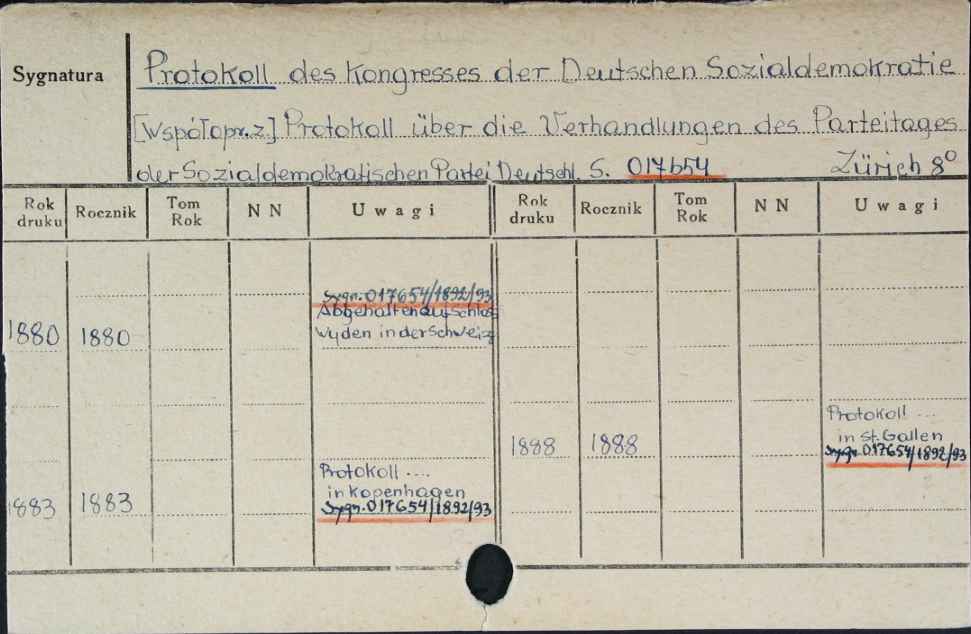 Sygnatura
Protokoll des Kongresses der Deutschen Sozialdemokratie
[Współopr. z.] Protokoll über die Verhandlungen des Parteitages
der Sozialdemokratischen Partei Deutschl. S. 017654 Zürich 8°
Rok druku Rocznik Tom Rok NN Uwagi Rok druku Rocznik Tom Rok NN Uwagi
Sygn. 017654/1892/93
Abgehalten auf Schloß
1880 1880 Wyden in der Schweiz
Protokoll ...
in St. Gallen
1888 1888 Sygn. 017654/1892/93
Protokoll ....
in Kopenhagen
1883 1883 Sygn. 017654/1892/93